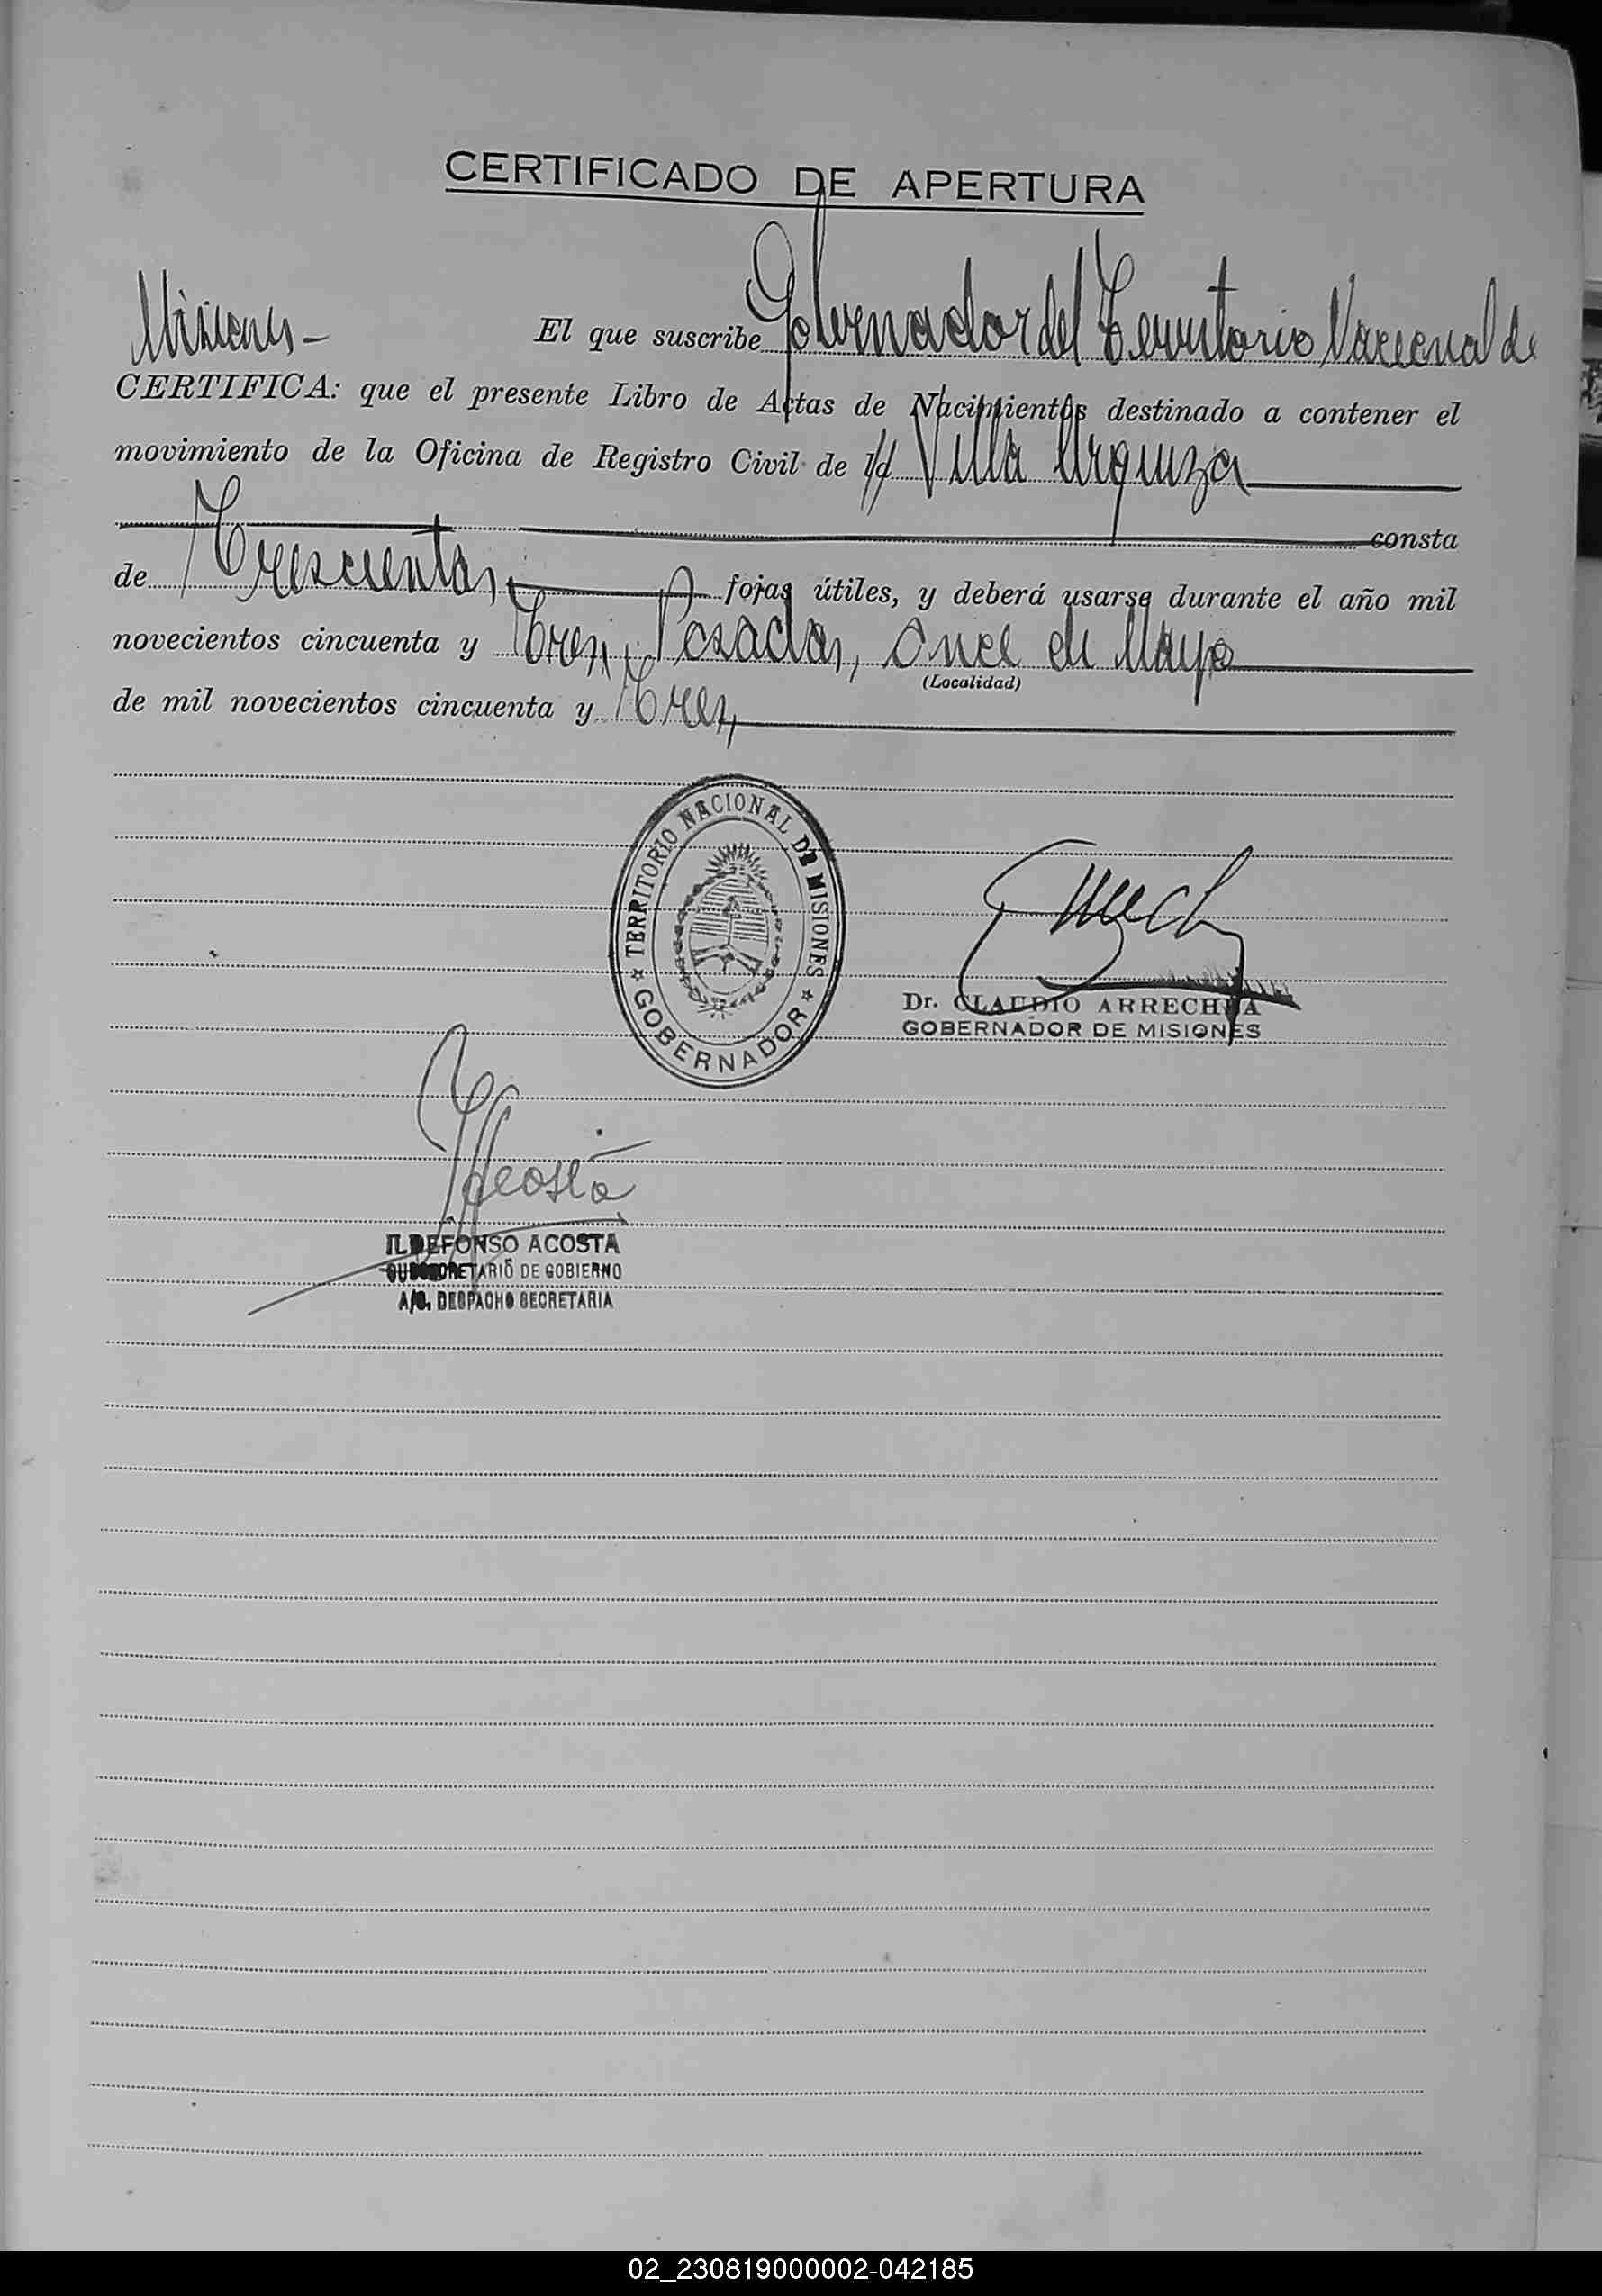 CERTIFICADO DE APERTURA
El que suscribe Gobernador del Territorio Nacional de
Misiones -
CERTIFICA: que el presente Libro de Actas de Nacimientos destinado a contener el
movimiento de la Oficina de Registro Civil de Villa Urquiza
consta
de Trescientas, fojas útiles, y deberá usarse durante el año mil
novecientos cincuenta y Tres, Posadas, Once de Mayo
(Localidad)
de mil novecientos cincuenta y Tres,
TERRITORIO NACIONAL DE MISIONES
GOBERNADOR
Dr. CLAUDIO ARRECHEA
GOBERNADOR DE MISIONES
IAcosta
ILDEFONSO ACOSTA
SUBSECRETARIO DE GOBIERNO
A/C. DESPACHO SECRETARIA
02_230819000002-042185